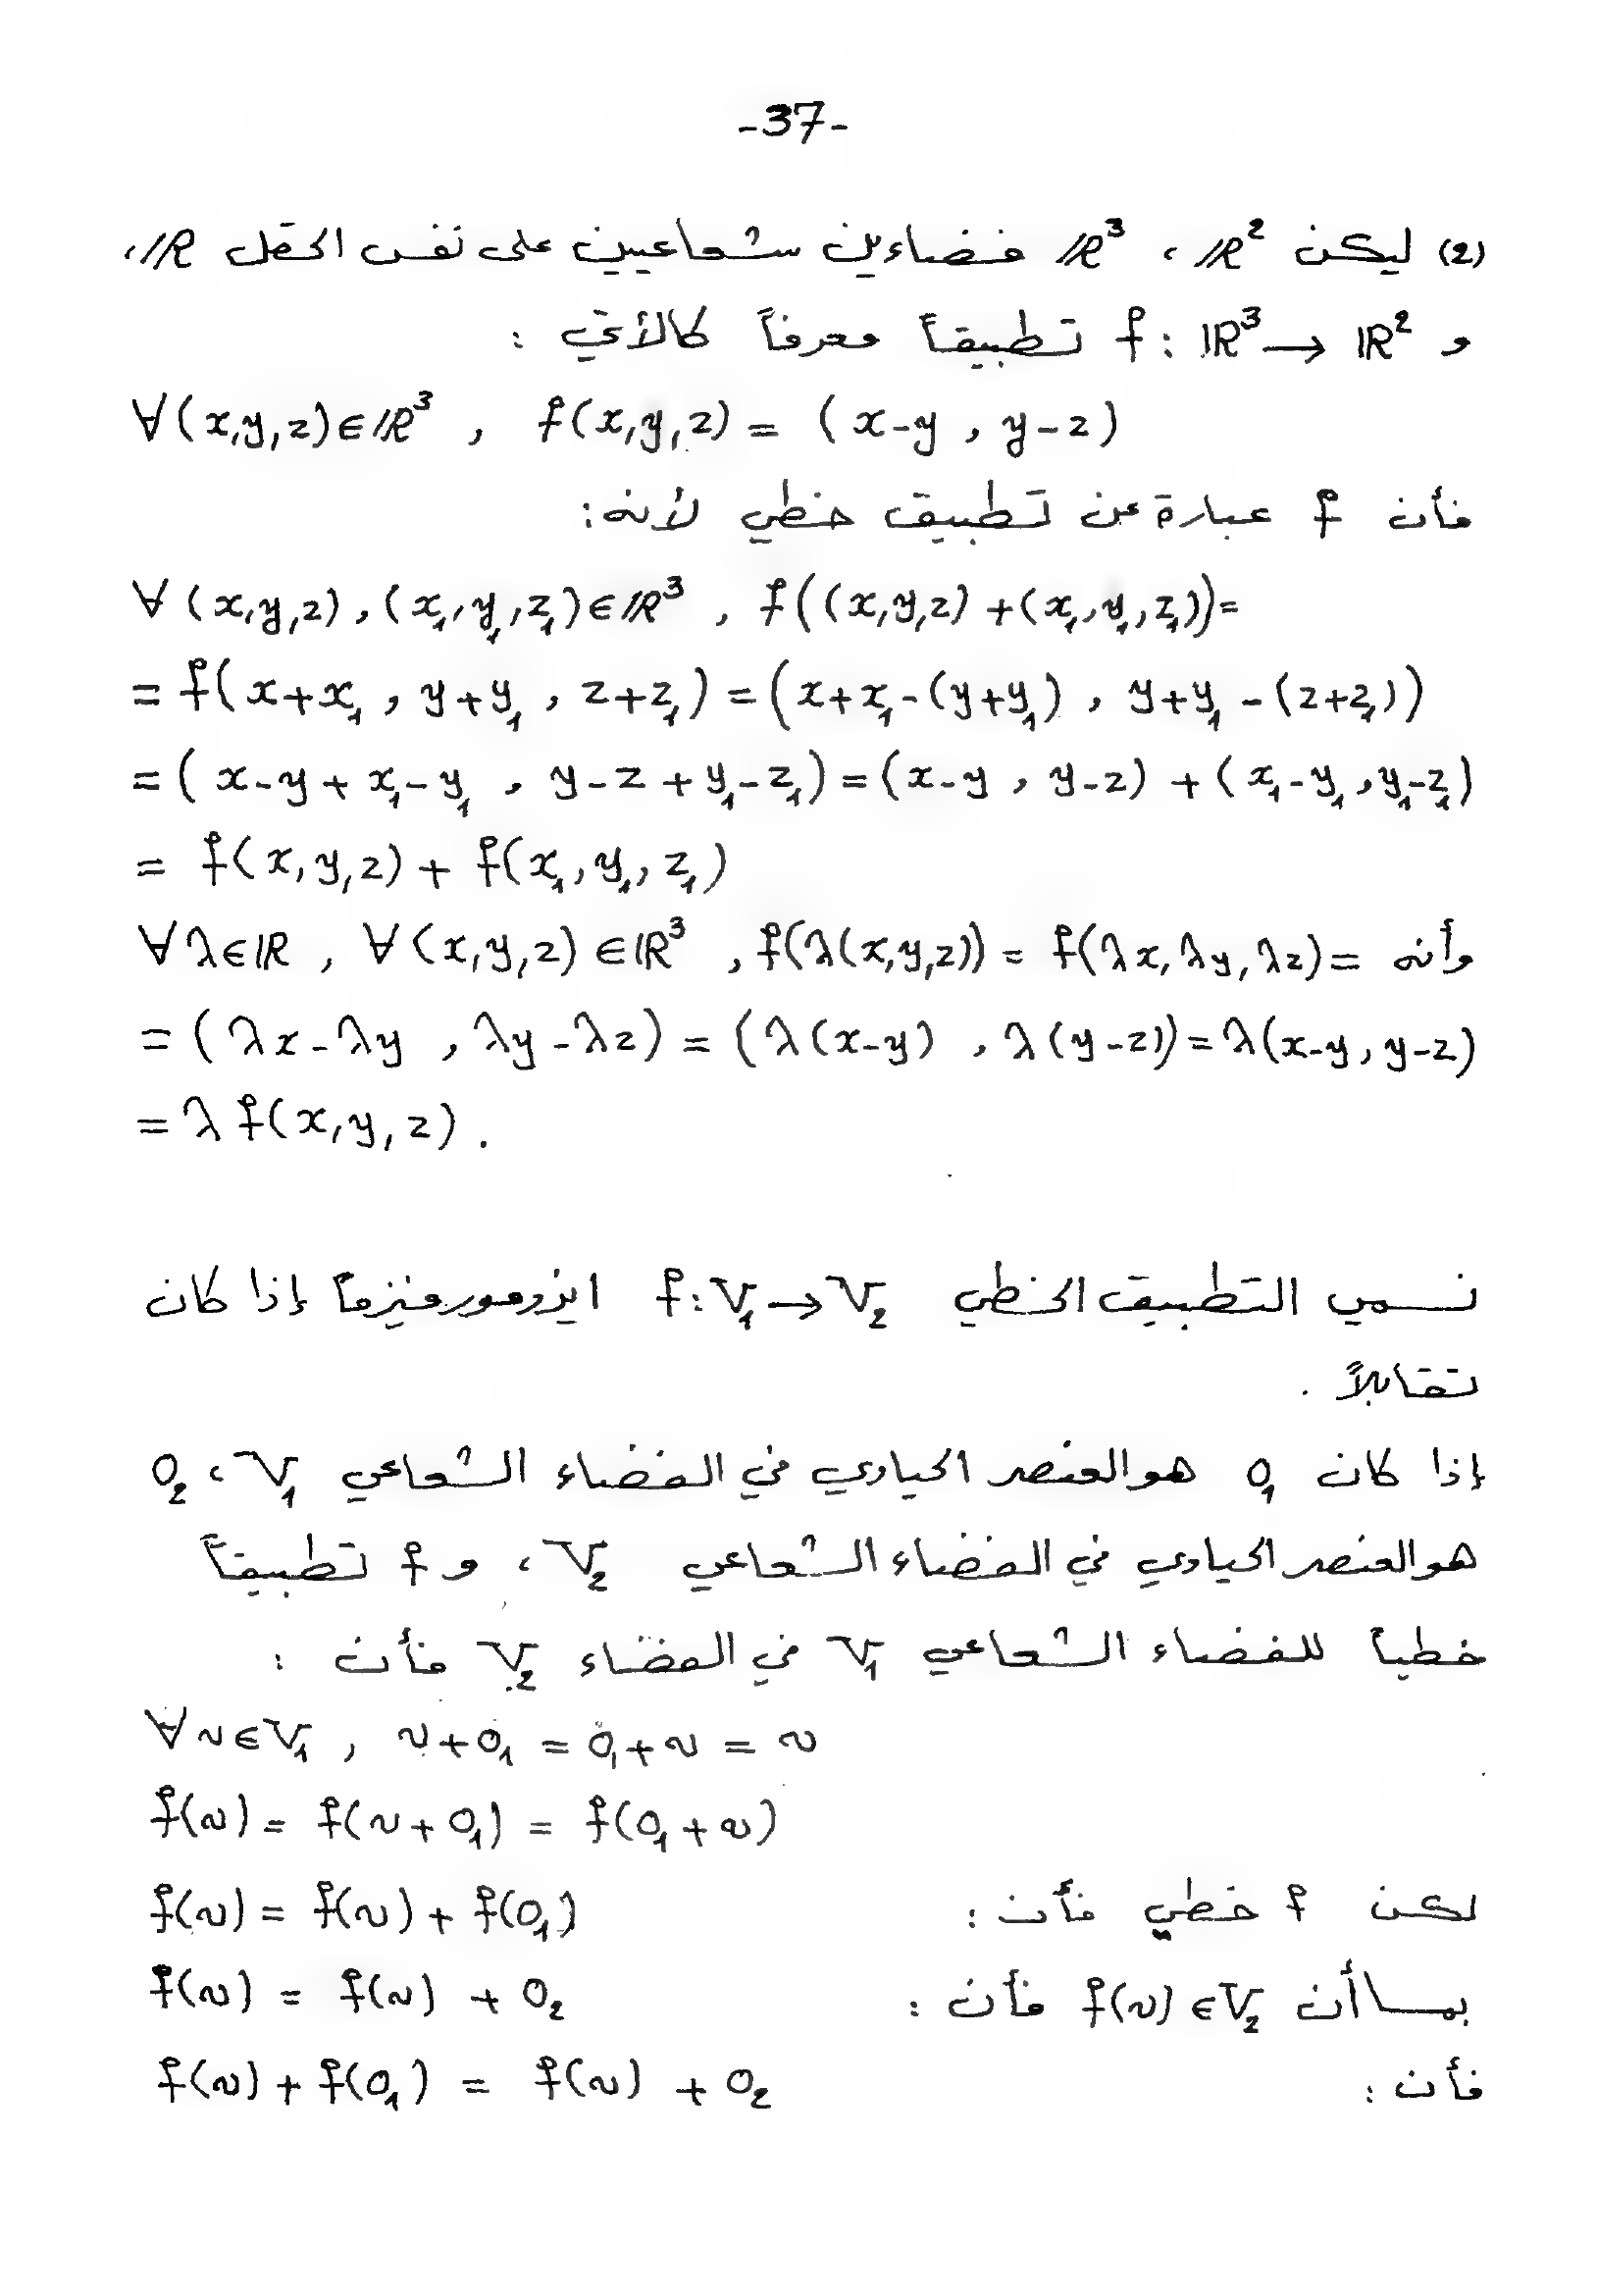 -37-
(2) ليكن ℝ² ، ℝ³ فضاءين شعاعيين على نفس الحقل ℝ،
و f: ℝ³ → ℝ² تطبيقاً معرفاً كالأتي :
∀(x,y,z)∈ℝ³ , f(x,y,z) = (x-y , y-z)
فأن f عبارة عن تطبيق خطي لأنه:
∀(x,y,z),(x₁,y₁,z₁)∈ℝ³ , f((x,y,z)+(x₁,y₁,z₁))=
= f(x+x₁ , y+y₁ , z+z₁) = (x+x₁-(y+y₁) , y+y₁-(z+z₁))
= (x-y+x₁-y₁ , y-z+y₁-z₁) = (x-y , y-z) + (x₁-y₁,y₁-z₁)
= f(x,y,z) + f(x₁,y₁,z₁)
وأنه ∀λ∈ℝ , ∀(x,y,z)∈ℝ³ , f(λ(x,y,z)) = f(λx,λy,λz) =
= (λx-λy , λy-λz) = (λ(x-y) , λ(y-z)) = λ(x-y,y-z)
= λ f(x,y,z) .
نسمي التطبيق الخطي f: V₁ → V₂ ايزومورفيزماً إذا كان
تقابلاً .
إذا كان 0₁ هو العنصر الحيادي في الفضاء الشعاعي V₁ ، 0₂
هو العنصر الحيادي في الفضاء الشعاعي V₂ ، و f تطبيقاً
خطياً للفضاء الشعاعي V₁ في الفضاء V₂ فأن :
∀v∈V₁ , v+0₁ = 0₁+v = v
f(v) = f(v+0₁) = f(0₁+v)
لكن f خطي فأن : f(v) = f(v) + f(0₁)
بما أن f(v)∈V₂ فأن : f(v) = f(v) + 0₂
فأن : f(v) + f(0₁) = f(v) + 0₂